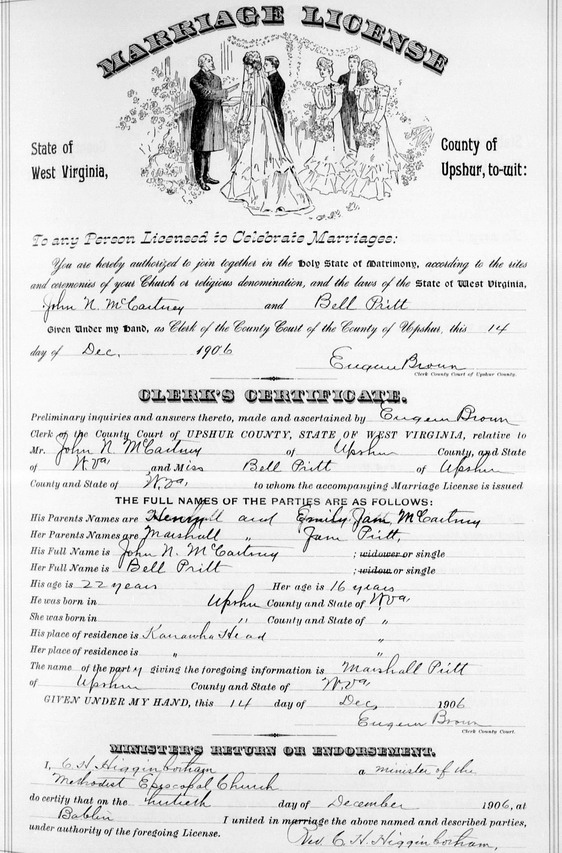 MARRIAGE LICENSE
State of
West Virginia,
County of
Upshur, to-wit:
To any Person Licensed to Celebrate Marriages:
You are hereby authorized to join together in the Holy State of Matrimony, according to the rites
and ceremonies of your Church or religious denomination, and the laws of the State of West Virginia,
John N. McCartney and Bell Pritt
Given under my Hand, as Clerk of the County Court of the County of Upshur, this 14
day of Dec. 1906
Eugene Brown
Clerk County Court of Upshur County.
CLERK'S CERTIFICATE.
Preliminary inquiries and answers thereto, made and ascertained by Eugene Brown
Clerk of the County Court of UPSHUR COUNTY, STATE OF WEST VIRGINIA, relative to
Mr. John N. McCartney of Upshur County, and State
of W.Va, and Miss Bell Pritt of Upshur
County and State of W.Va, to whom the accompanying Marriage License is issued
THE FULL NAMES OF THE PARTIES ARE AS FOLLOWS:
His Parents Names are and Emily Jane McCartney
Her Parents Names are Marshall " Jane Pritt,
His Full Name is John N. McCartney ; widower or single
Her Full Name is Bell Pritt ; widow or single
His age is 22 years Her age is 16 years
He was born in Upshur County and State of W.Va,
She was born in " County and State of "
His place of residence is Kanawha Head "
Her place of residence is " "
The name of the party giving the foregoing information is Marshall Pritt
of Upshur County and State of W.Va,
GIVEN UNDER MY HAND, this 14 day of Dec, 1906
Eugene Brown
Clerk County Court.
MINISTER'S RETURN OR ENDORSEMENT.
I, C. H. Higginbotham a minister of the
Methodist Episcopal Church
do certify that on the day of December 1906, at
Bablin I united in marriage the above named and described parties,
under authority of the foregoing License. Rev. C. H. Higginbotham,